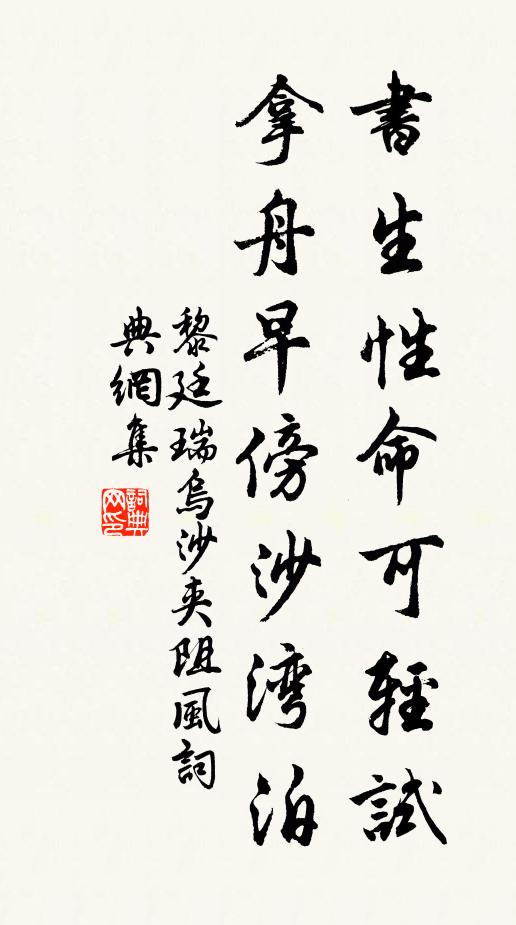 書生性命可輕試
拿舟早傍沙湾泊
黎廷瑞烏沙夹阻風詞
典網集
詞典
网印